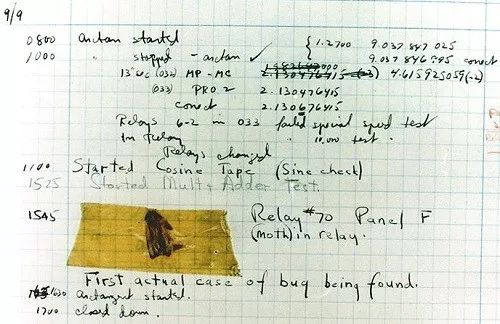 9/9
0800 Antan started
1000 " stopped - antan ✓ { 1.2700 9.037 847 025
9.037 846 995 conect
13"uc (032) MP - MC 2.130476415 4.615925059(-2)
(033) PRO 2 2.130476415
conect 2.130676415
Relays 6-2 in 033 failed special speed test
In Relay " 10.000 test .
Relays changed
1100 Started Cosine Tape (Sine check)
1525 Started Mult + Adder Test.
1545 Relay #70 Panel F
(moth) in relay.
First actual case of bug being found.
1630 antangent started.
1700 closed down.